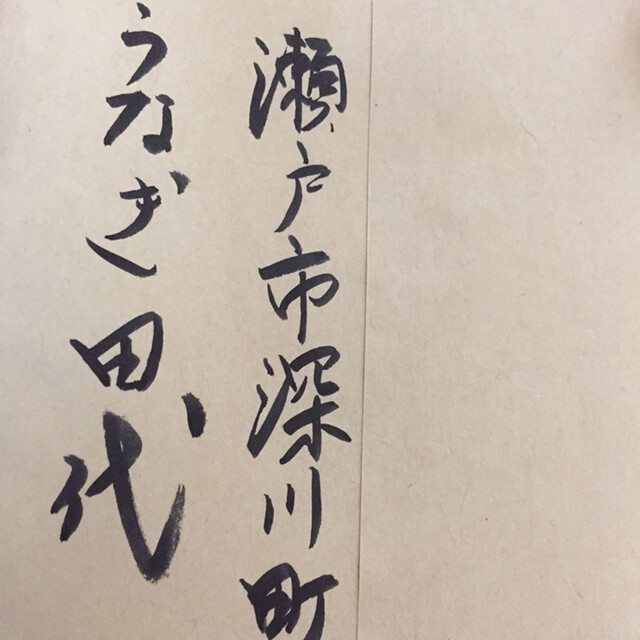 瀬戸市深川町
うなぎ田代